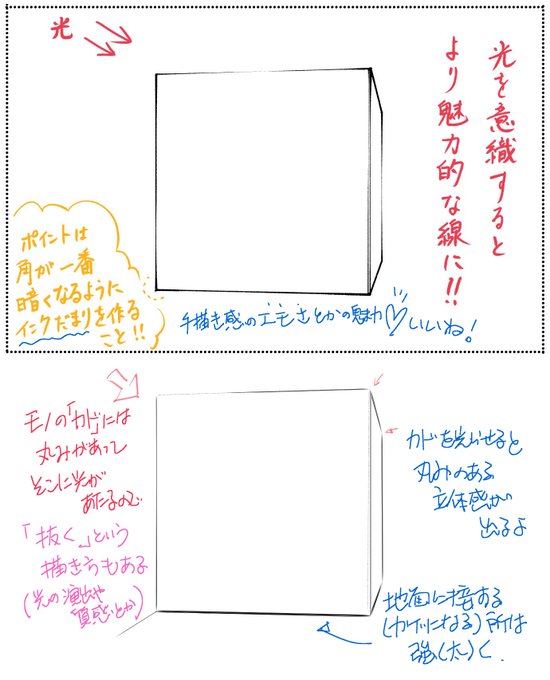 光
光を意識すると
より魅力的な線に!!
ポイントは
角が一番
暗くなるように
インクだまりを作る
こと!!
手描き感の
とかの魅力
いいね!
モノの「カド」には
丸みがあって
そこに光が
あたるので
「抜く」という
描き方もある
(光の演出や
質感とか)
カドを光らせると
丸みのある
立体感が
出るよ
地面に接する
(カゲになる)所は
強(太)く